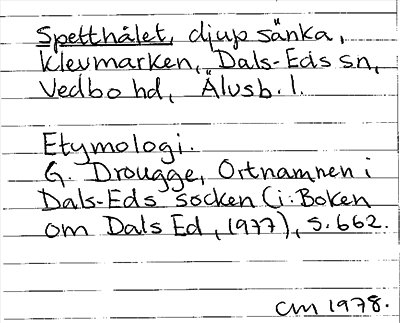 Spetthålet, djup sänka,
Klevmarken, Dals-Eds sn,
Vedbo hd, Älvsb. l.
Etymologi.
G. Drougge, Ortnamnen i
Dals-Eds socken (i: Boken
om Dals Ed, 1977), s. 662.
CM 1978.